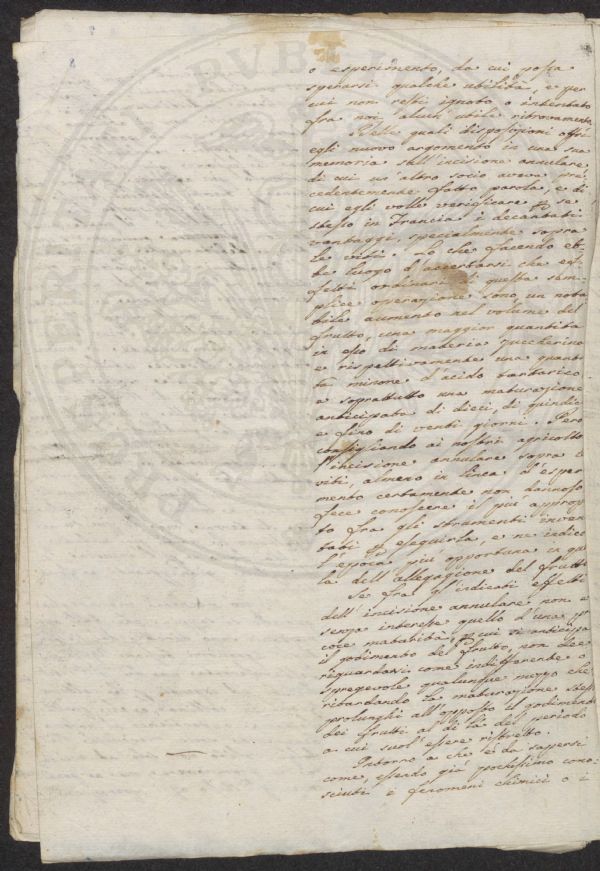 o esperimento, da cui possa
sperarsi qualche utilità, e per
cui non resti ignoto o intentato
fra noi, alcun' utile ritrovamento.
Nelle quali disposizioni offrì
egli nuovo argomento in una sua
memoria sull'incisione anulare
di cui un' altro socio aveva pre
cedentemente fatto parola, e di
cui egli volle verificare p se
stesso in Francia i decantati
vantaggi, specialmente sopra
le viti. Lo che facendo eb
be luogo d'accertarsi che ef
fetti ordinari di questa sem
plice operazione sono, un nota
bile aumento nel volume del
frutto, una maggior quantità
in esso di materia zuccherina
e rispettivamente una quanti
tà minore d'acido tartarico
e soprattutto una maturazione
anticipata di dieci, di quindici
e fino di venti giorni. Però
consigliando ai nostri agricolto
l'incisione anulare sopra le
viti, almeno in linea d'esper
mento certamente non dannoso
fece conoscere il più approp
to fra gli strumenti inven
tati p eseguirla, e ne indicò
l'epoca più opportuna in quel
la dell'allegagione del frutto
Se fra gl'indicati effetti
dell'incisione anulare non è
senza interesse quello d'una pre
coce maturità p cui si anticipa
il godimento del frutto, non dee
riguardarsi come indifferente o
spregevole qualunque mezzo che
ritardando la maturazione stessa
prolunghi all'opposto il godimento
dei frutti al di là del periodo
a cui suol' essere ristretto.
Intorno a che è da sapersi
come, essendo già pochissimo cono=
sciuti i fenomeni chimici o i